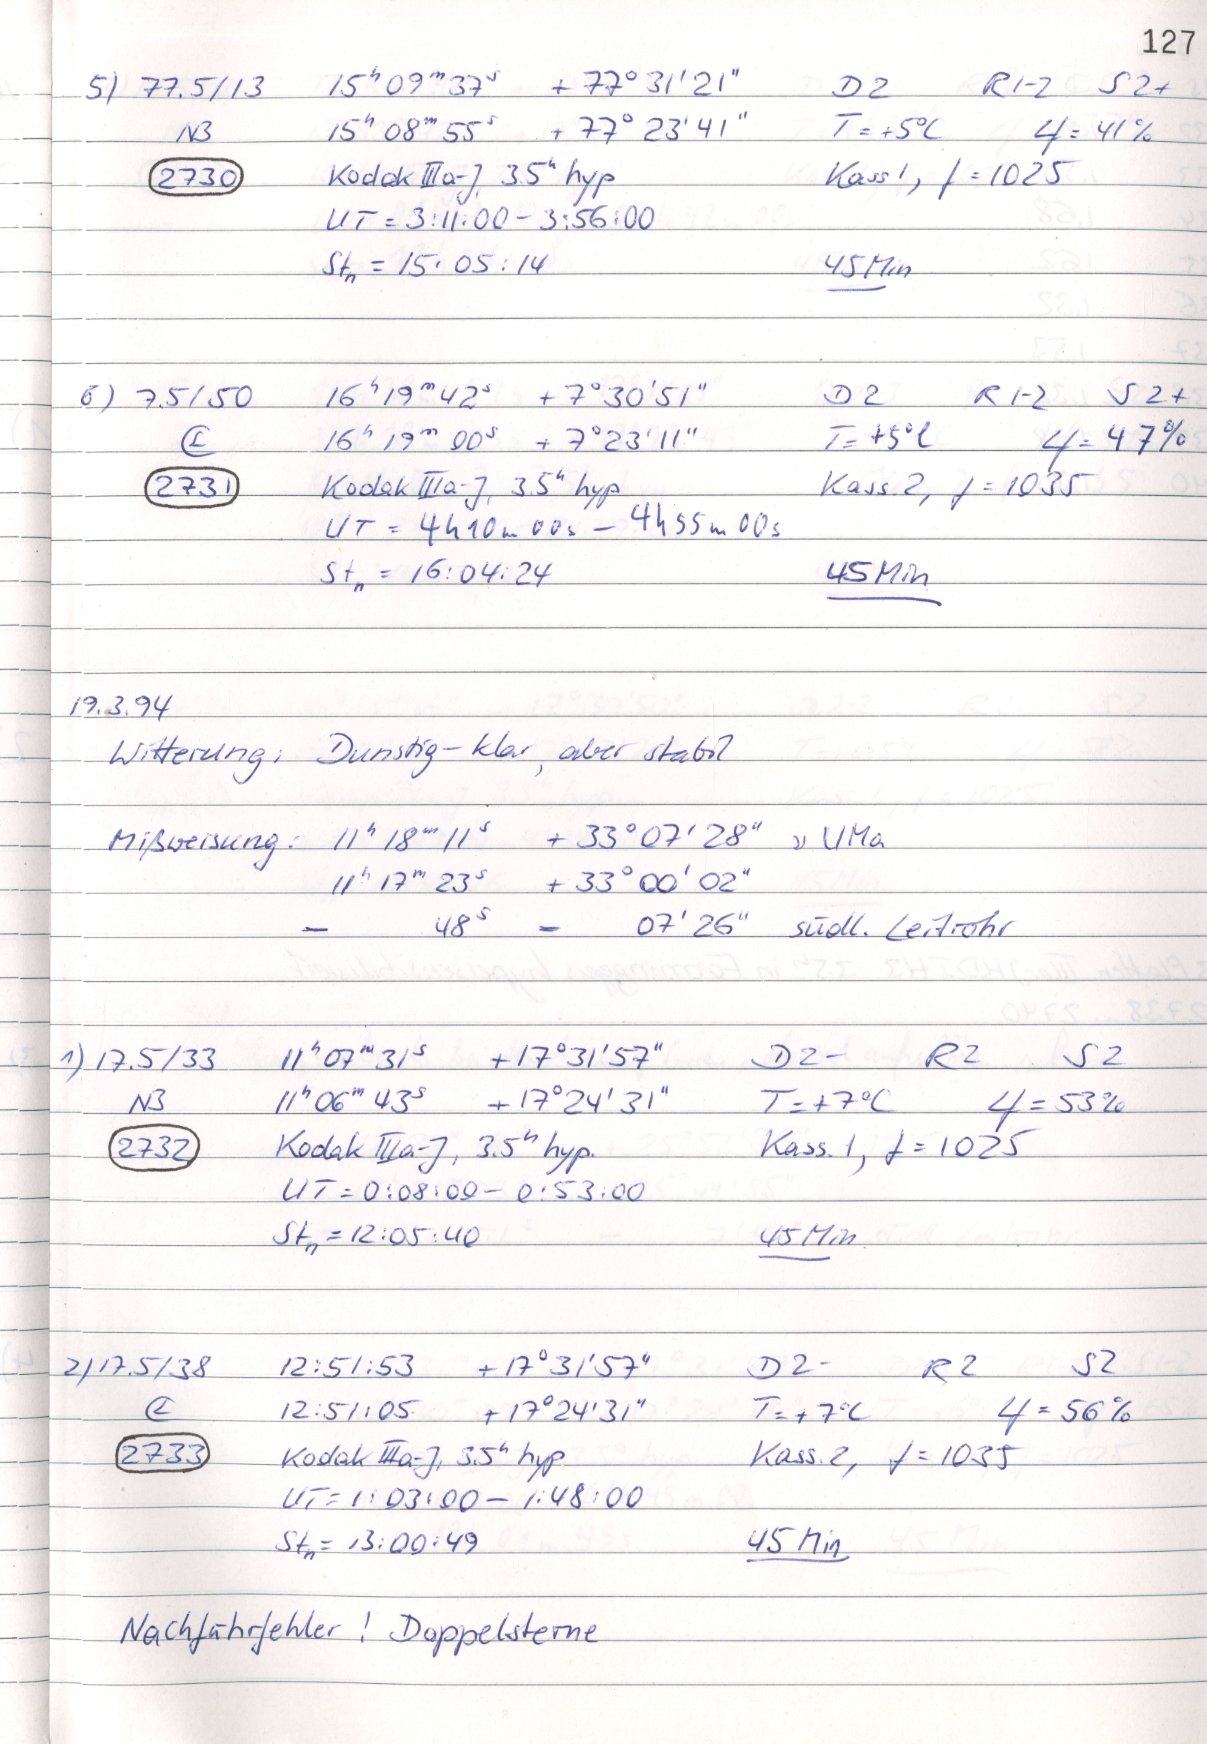 127
5) 77.5/13 15ʰ09ᵐ37ˢ +77°31'21" D2 R1-2 S2+
N3 15ʰ08ᵐ55ˢ +77°23'41" T=+5°C φ=41%
2730 Kodak IIIa-J, 3.5ʰ hyp Kass 1, f=1025
UT = 3:11:00 - 3:56:00
Stₙ = 15:05:14 45 Min
6) 7.5/50 16ʰ19ᵐ42ˢ +7°30'51" D2 R1-2 S2+
16ʰ19ᵐ00ˢ +7°23'11" T=+5°C φ=47%
2731 Kodak IIIa-J, 3.5ʰ hyp Kass. 2, f=1035
UT = 4h10m00s - 4h55m00s
Stₙ = 16:04:24 45 Min
19.3.94
Witterung: Dunstig-klar, aber stabil
Mißweisung: 11ʰ18ᵐ11ˢ +33°07'28" ν UMa
11ʰ17ᵐ23ˢ +33°00'02"
- 48ˢ - 07'26" südl. Leitrohr
1) 17.5/33 11ʰ07ᵐ31ˢ +17°31'57" D2- R2 S2
N3 11ʰ06ᵐ43ˢ +17°24'31" T=+7°C φ=53%
2732 Kodak IIIa-J, 3.5ʰ hyp. Kass. 1, f=1025
UT=0:08:00 - 0:53:00
Stₙ=12:05:40 45 Min
2) 17.5/38 12:51:53 +17°31'57" D2- R2 S2
12:51:05 +17°24'31" T=+7°C φ=56%
2733 Kodak IIIa-J, 3.5ʰ hyp Kass. 2, f=1035
UT=1:03:00 - 1:48:00
Stₙ= 13:00:49 45 Min
Nachführfehler! Doppelsterne